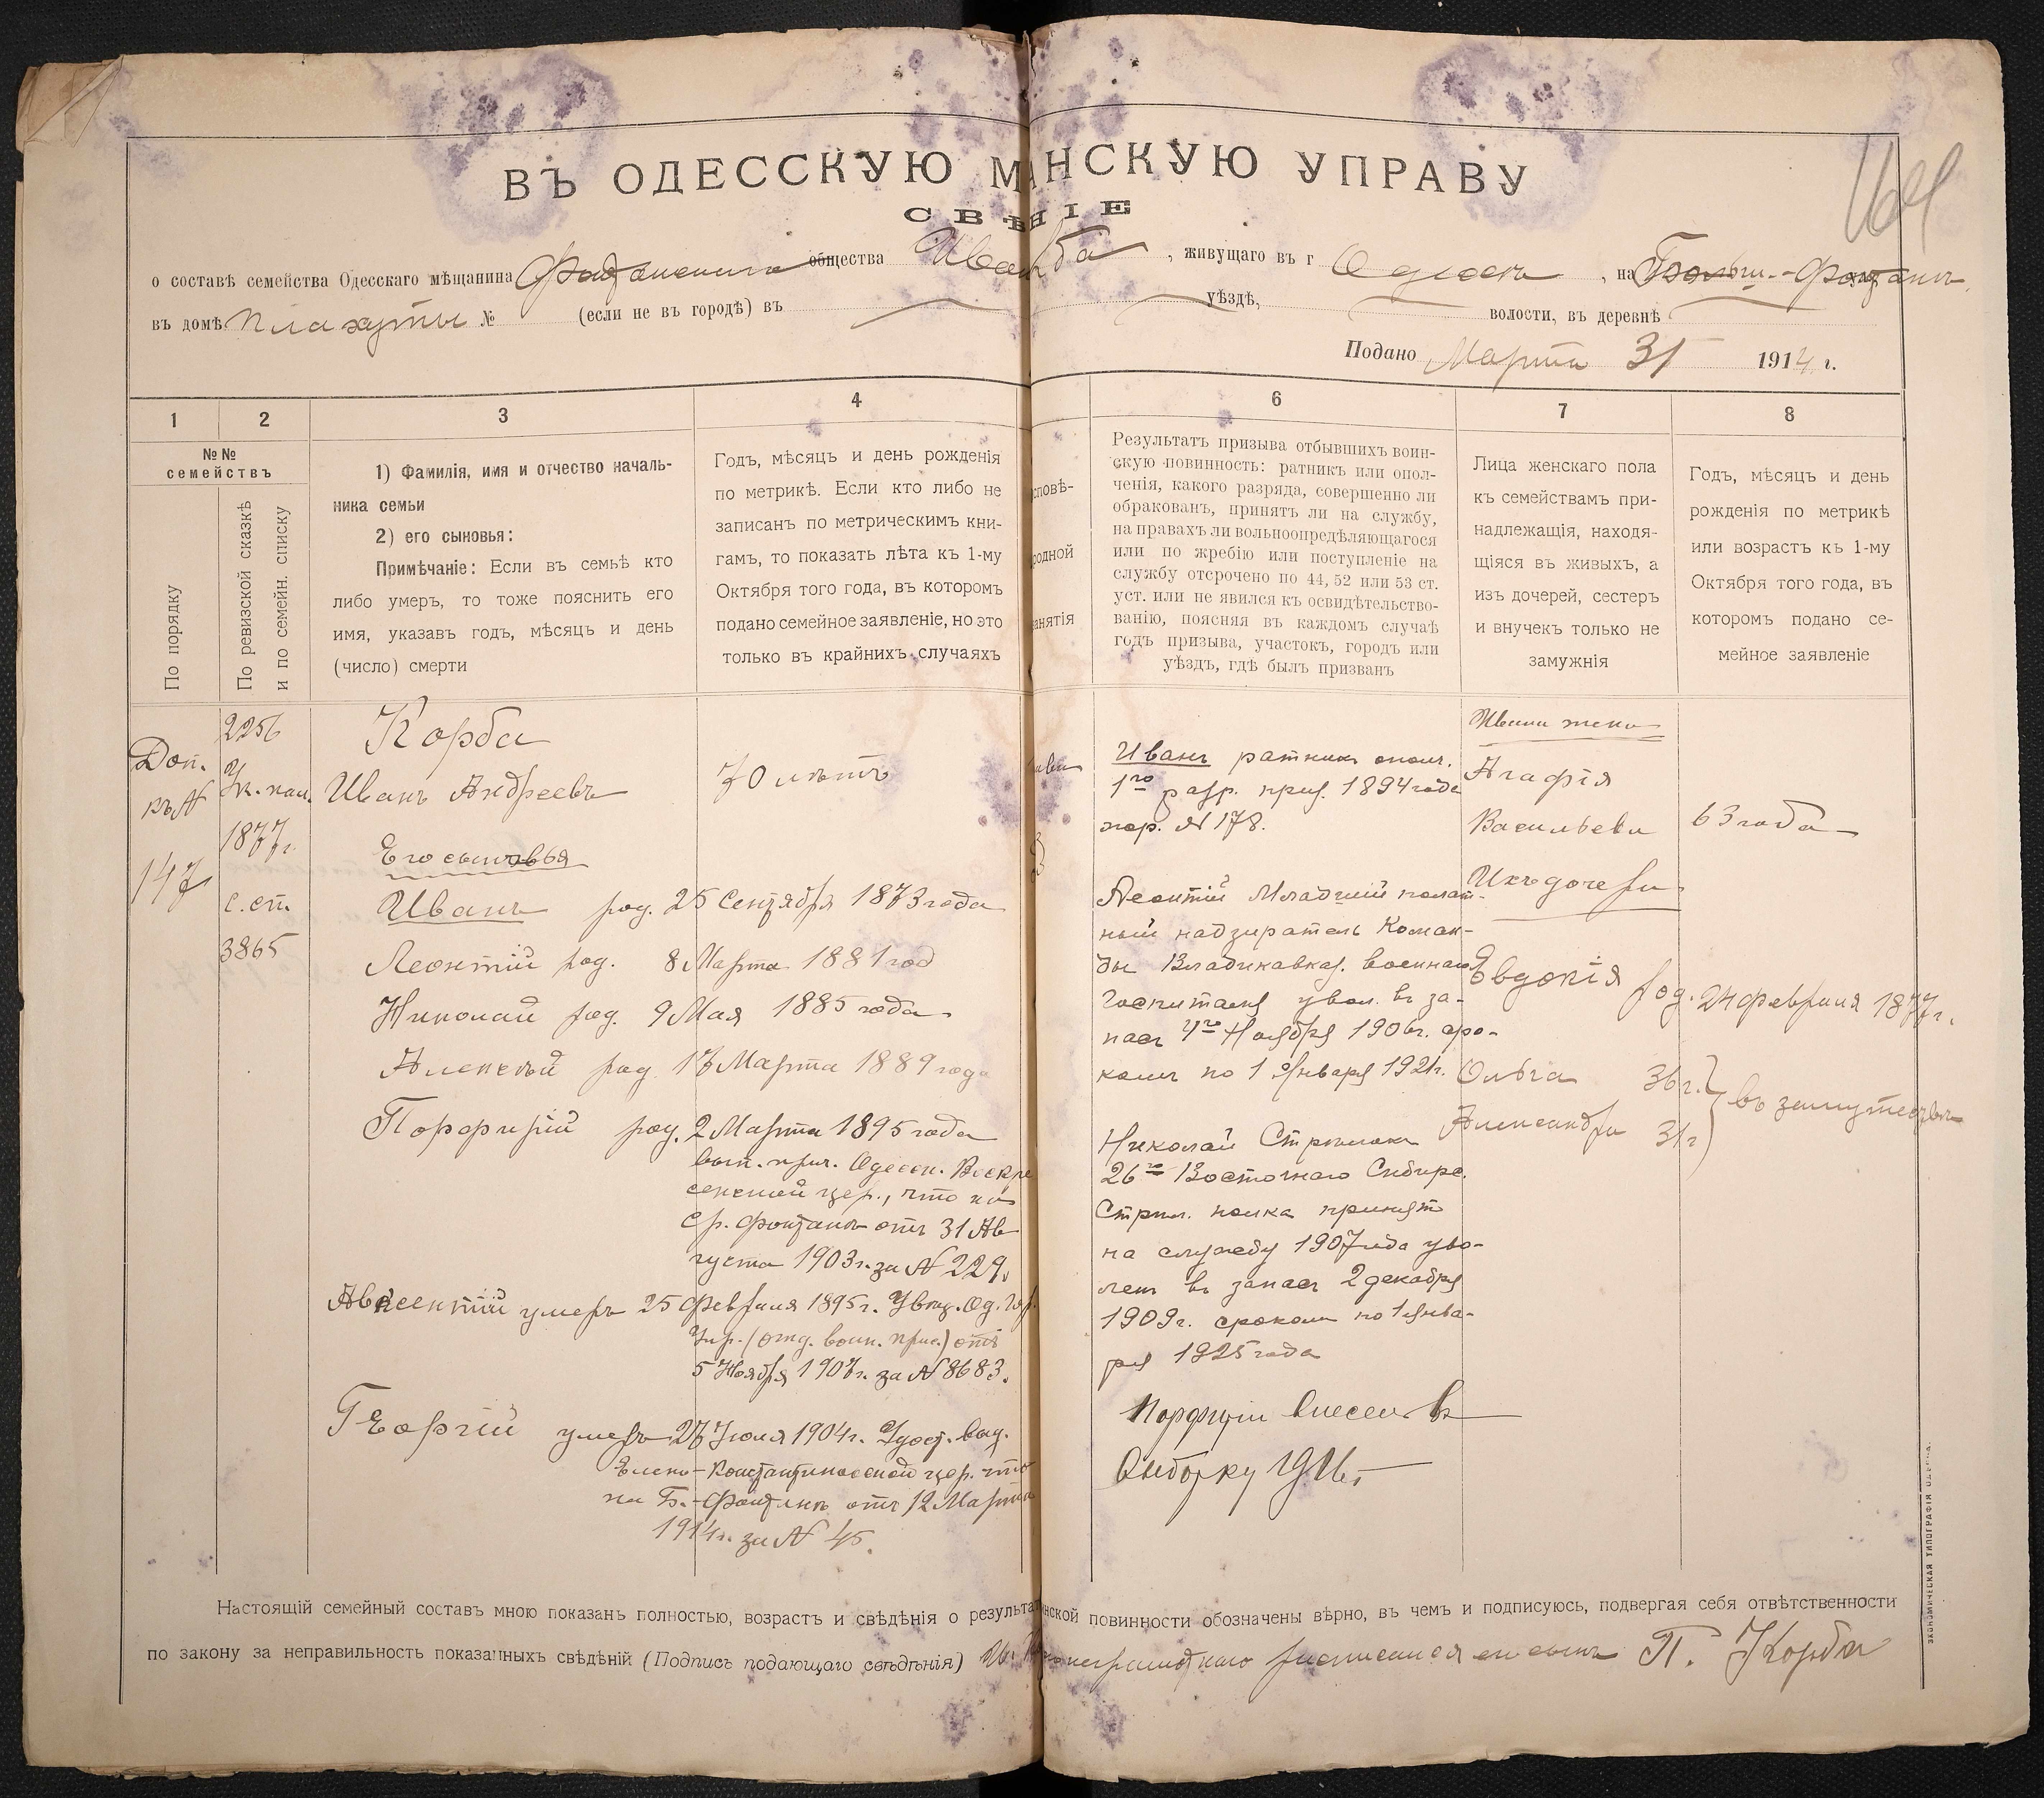 ВЪ ОДЕССКУЮ М НСКУЮ УПРАВУ
СВѢ НІЕ
161
о составѣ семейства Одесскаго мѣщанина Фонтанскаго общества Ива рба, живущаго въ г Одессѣ, на Больш.-Фонтанѣ
въ домѣ Плахуты № (если не въ городѣ) въ уѣздѣ, волости, въ деревнѣ
Подано Марта 31 1914 г.
1 2 3 4 6 7 8
№№ семействъ
По порядку
По ревизской сказкѣ
и по семейн. списку
1) Фамилія, имя и отчество началь-
ника семьи
2) его сыновья:
Примѣчаніе: Если въ семьѣ кто
либо умеръ, то тоже пояснить его
имя, указавъ годъ, мѣсяцъ и день
(число) смерти
Годъ, мѣсяцъ и день рожденія
по метрикѣ. Если кто либо не
записанъ по метрическимъ кни-
гамъ, то показать лѣта къ 1-му
Октября того года, въ которомъ
подано семейное заявленіе, но это
только въ крайнихъ случаяхъ
сповѣ-
родной
анятія
Результатъ призыва отбывшихъ воин-
скую повинность: ратникъ или опол-
ченія, какого разряда, совершенно ли
обракованъ, принятъ ли на службу,
на правахъ ли вольноопредѣляющагося
или по жребію или поступленіе на
службу отсрочено по 44, 52 или 53 ст.
уст. или не явился къ освидѣтельство-
ванію, поясняя въ каждомъ случаѣ
годъ призыва, участокъ, городъ или
уѣздъ, гдѣ былъ призванъ
Лица женскаго пола
къ семействамъ при-
надлежащія, находя-
щіяся въ живыхъ, а
изъ дочерей, сестеръ
и внучекъ только не
замужнія
Годъ, мѣсяцъ и день
рожденія по метрикѣ
или возрастъ къ 1-му
Октября того года, въ
которомъ подано се-
мейное заявленіе
Доп.
къ №
147
2256
Ук. каз.
1877 г.
с. сп.
3865
Корба
Иванъ Андреевъ 70 лѣтъ
Его сыновья
Иванъ род. 25 Сентября 1873 года
Леонтій род. 8 Марта 1881 год
Николай род. 9 Мая 1885 года
Алексѣй род. 17 Марта 1889 года
Порфирій род. 2 Марта 1895 года
вып. прич. Одесск. Воскре
сенской цер., что на
Ср. Фонтанѣ отъ 31 Ав
густа 1903 г. за № 229.
Авксентій умеръ 25 Февраля 1895 г. Увѣд. Од. Гор.
Упр. (отд. воин. прис.) отъ
5 Ноября 1907 г. за № 8683.
Георгій умеръ 27 Іюля 1904 г. Удост. выд.
Елено-Константиновской цер. что
на Б.-Фонтанѣ отъ 12 Марта
1914 г. за № 45.
Иванъ ратникъ опол.
1го разр. приз. 1894 года
жер. № 178.
Леонтій Младшій палат-
ный надзиратель Коман-
ды Владикавказ. военнаго
госпиталя увол. въ за-
пасъ 4го Ноября 1906 г. сро-
комъ по 1 Января 1921 г.
Николай Стрѣлокъ
26го Восточнаго Сибирс.
Стрѣл. полка принятъ
на службу 1907 года уво-
ленъ въ запасъ 2 декабря
1909 г. срокомъ по 1 Янва-
ря 1925 года
Порфирій внесенъ въ
выборку
Ивана жена
Агафія
Васильева 63 года
Ихъ дочери
Евдокія род. 24 Февраля 1877 г.
Ольга 36 г.
Александра 31 г. } въ замужествѣ
Настоящій семейный составъ мною показанъ полностью, возрастъ и свѣдѣнія о результа инской повинности обозначены вѣрно, въ чемъ и подписуюсь, подвергая себя отвѣтственности
по закону за неправильность показанныхъ свѣдѣній (Подпись подающаго свѣдѣнія) неграмотнаго росписался сынъ П. Корба
ЭКОНОМИЧЕСКАЯ ТИПОГРАФІЯ ОДЕССА.